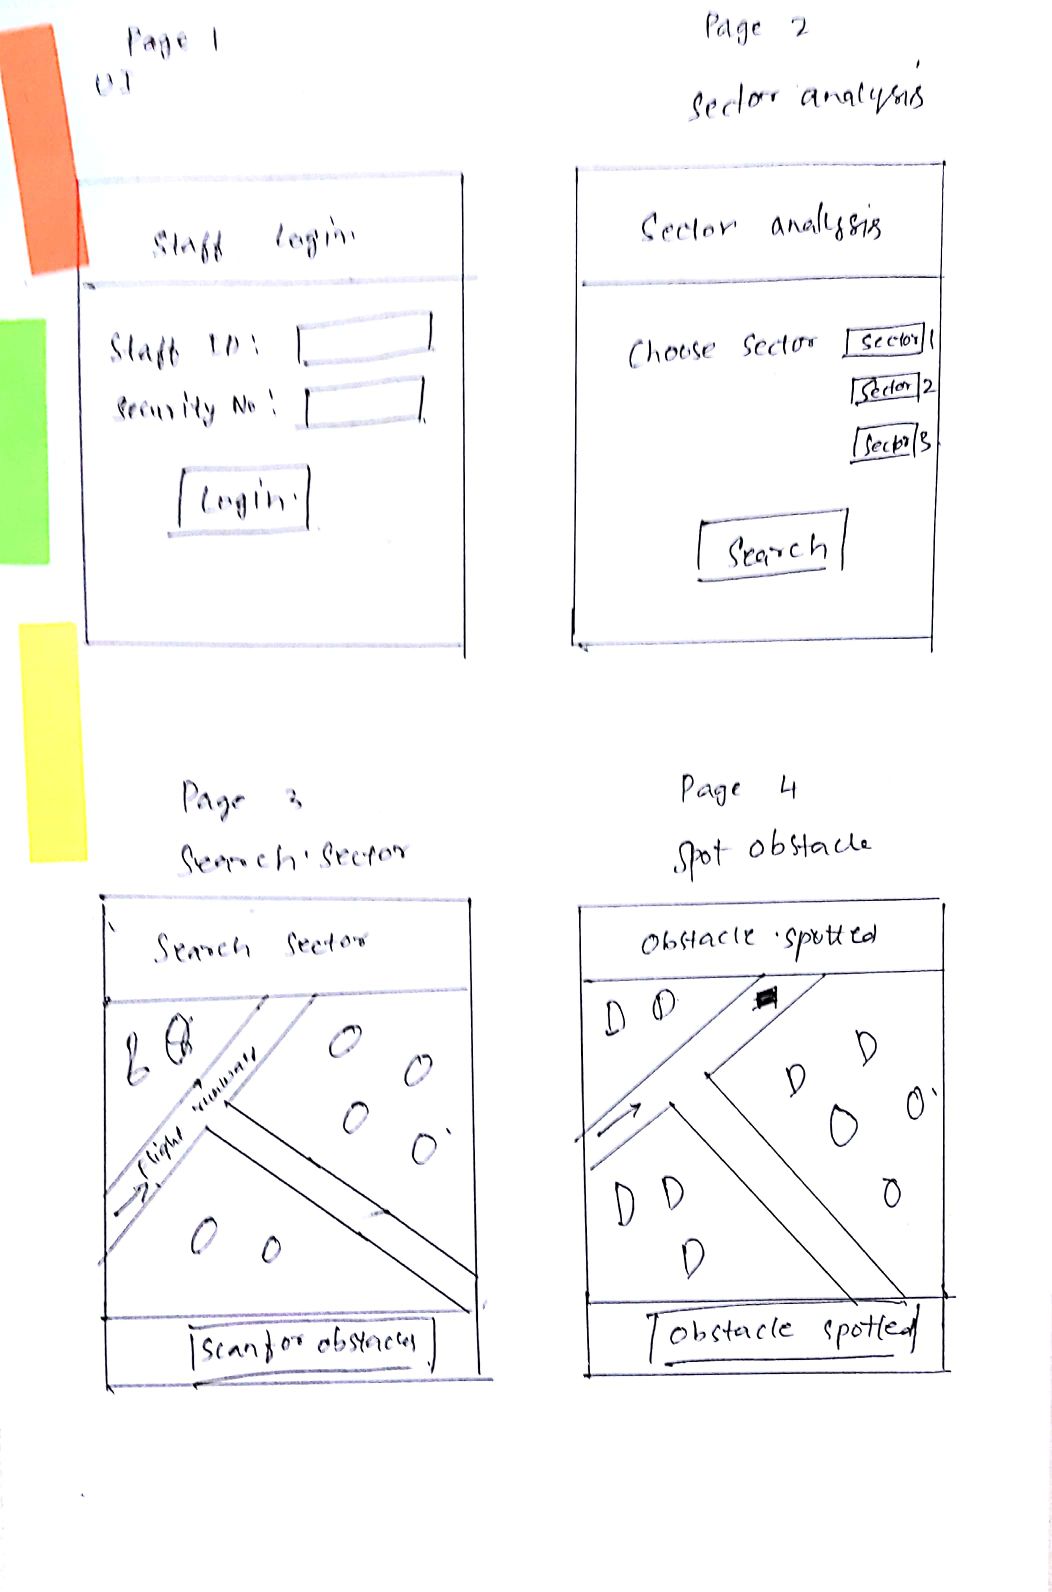 Page 1
UI
Staff Login.
Staff ID:
Security No:
Login.
Page 2
Sector analysis
Sector analysis
Choose Sector Sector 1
Sector 2
Sector 3
Search
Page 3
Search Sector
Search Sector
flight runway
Scan for obstacles
Page 4
Spot obstacle
Obstacle spotted
D D
D
D
O
O
D D
O
D
Obstacle spotted